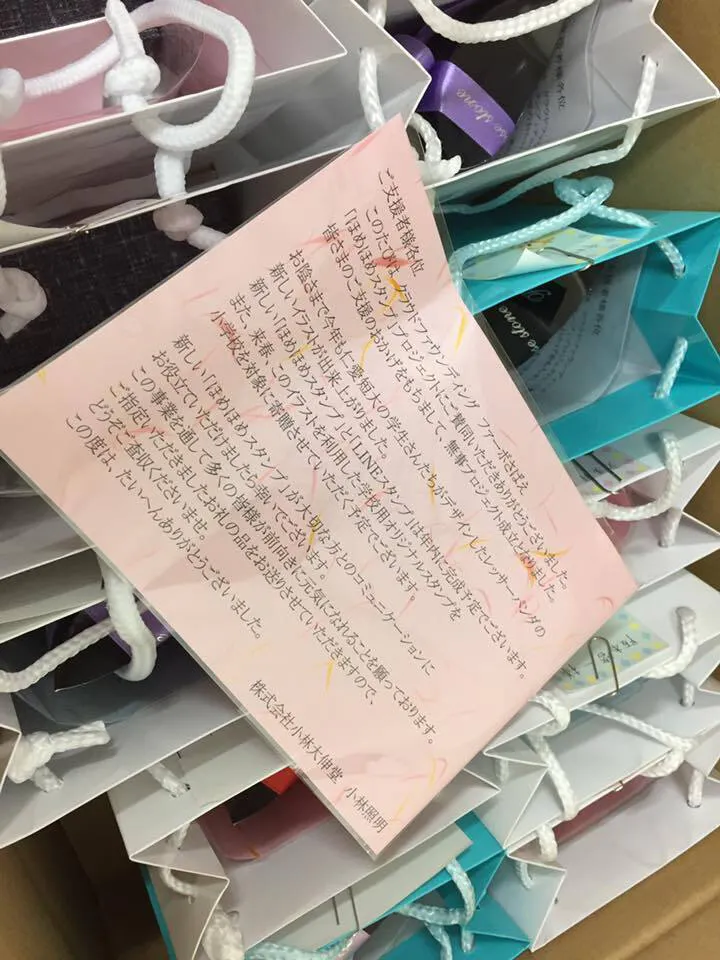 ご支援者様各位
このたびは、クラウドファウンディング ファーボさばえ
「ほめほめスタンプ」プロジェクトにご賛同いただきありがとうございました。
皆さまのご支援のおかげをもちまして、無事プロジェクト成立なりました。
お陰さまで今年も仁愛短大の学生さんたちがデザインしたレッサーパンダの
新しいイラストが出来上がりました。
新しい「ほめほめスタンプ」と「LINEスタンプ」は年内に完成予定でございます。
また、来春、このイラストを利用した学校用オリジナルスタンプを
小学校を対象に寄贈させていただく予定でございます。
新しい「ほめほめスタンプ」が大切な方とのコミュニケーションに
お役立ていただけましたら幸いでございます。
この事業を通して多くの皆様が前向きに元気になれることを願っております。
ご指定いただきましたお礼の品をお送りさせていただきますので、
どうぞご査収くださいませ。
この度は、たいへんありがとうございました。
株式会社小林大伸堂 小林照明
se stone
se stone